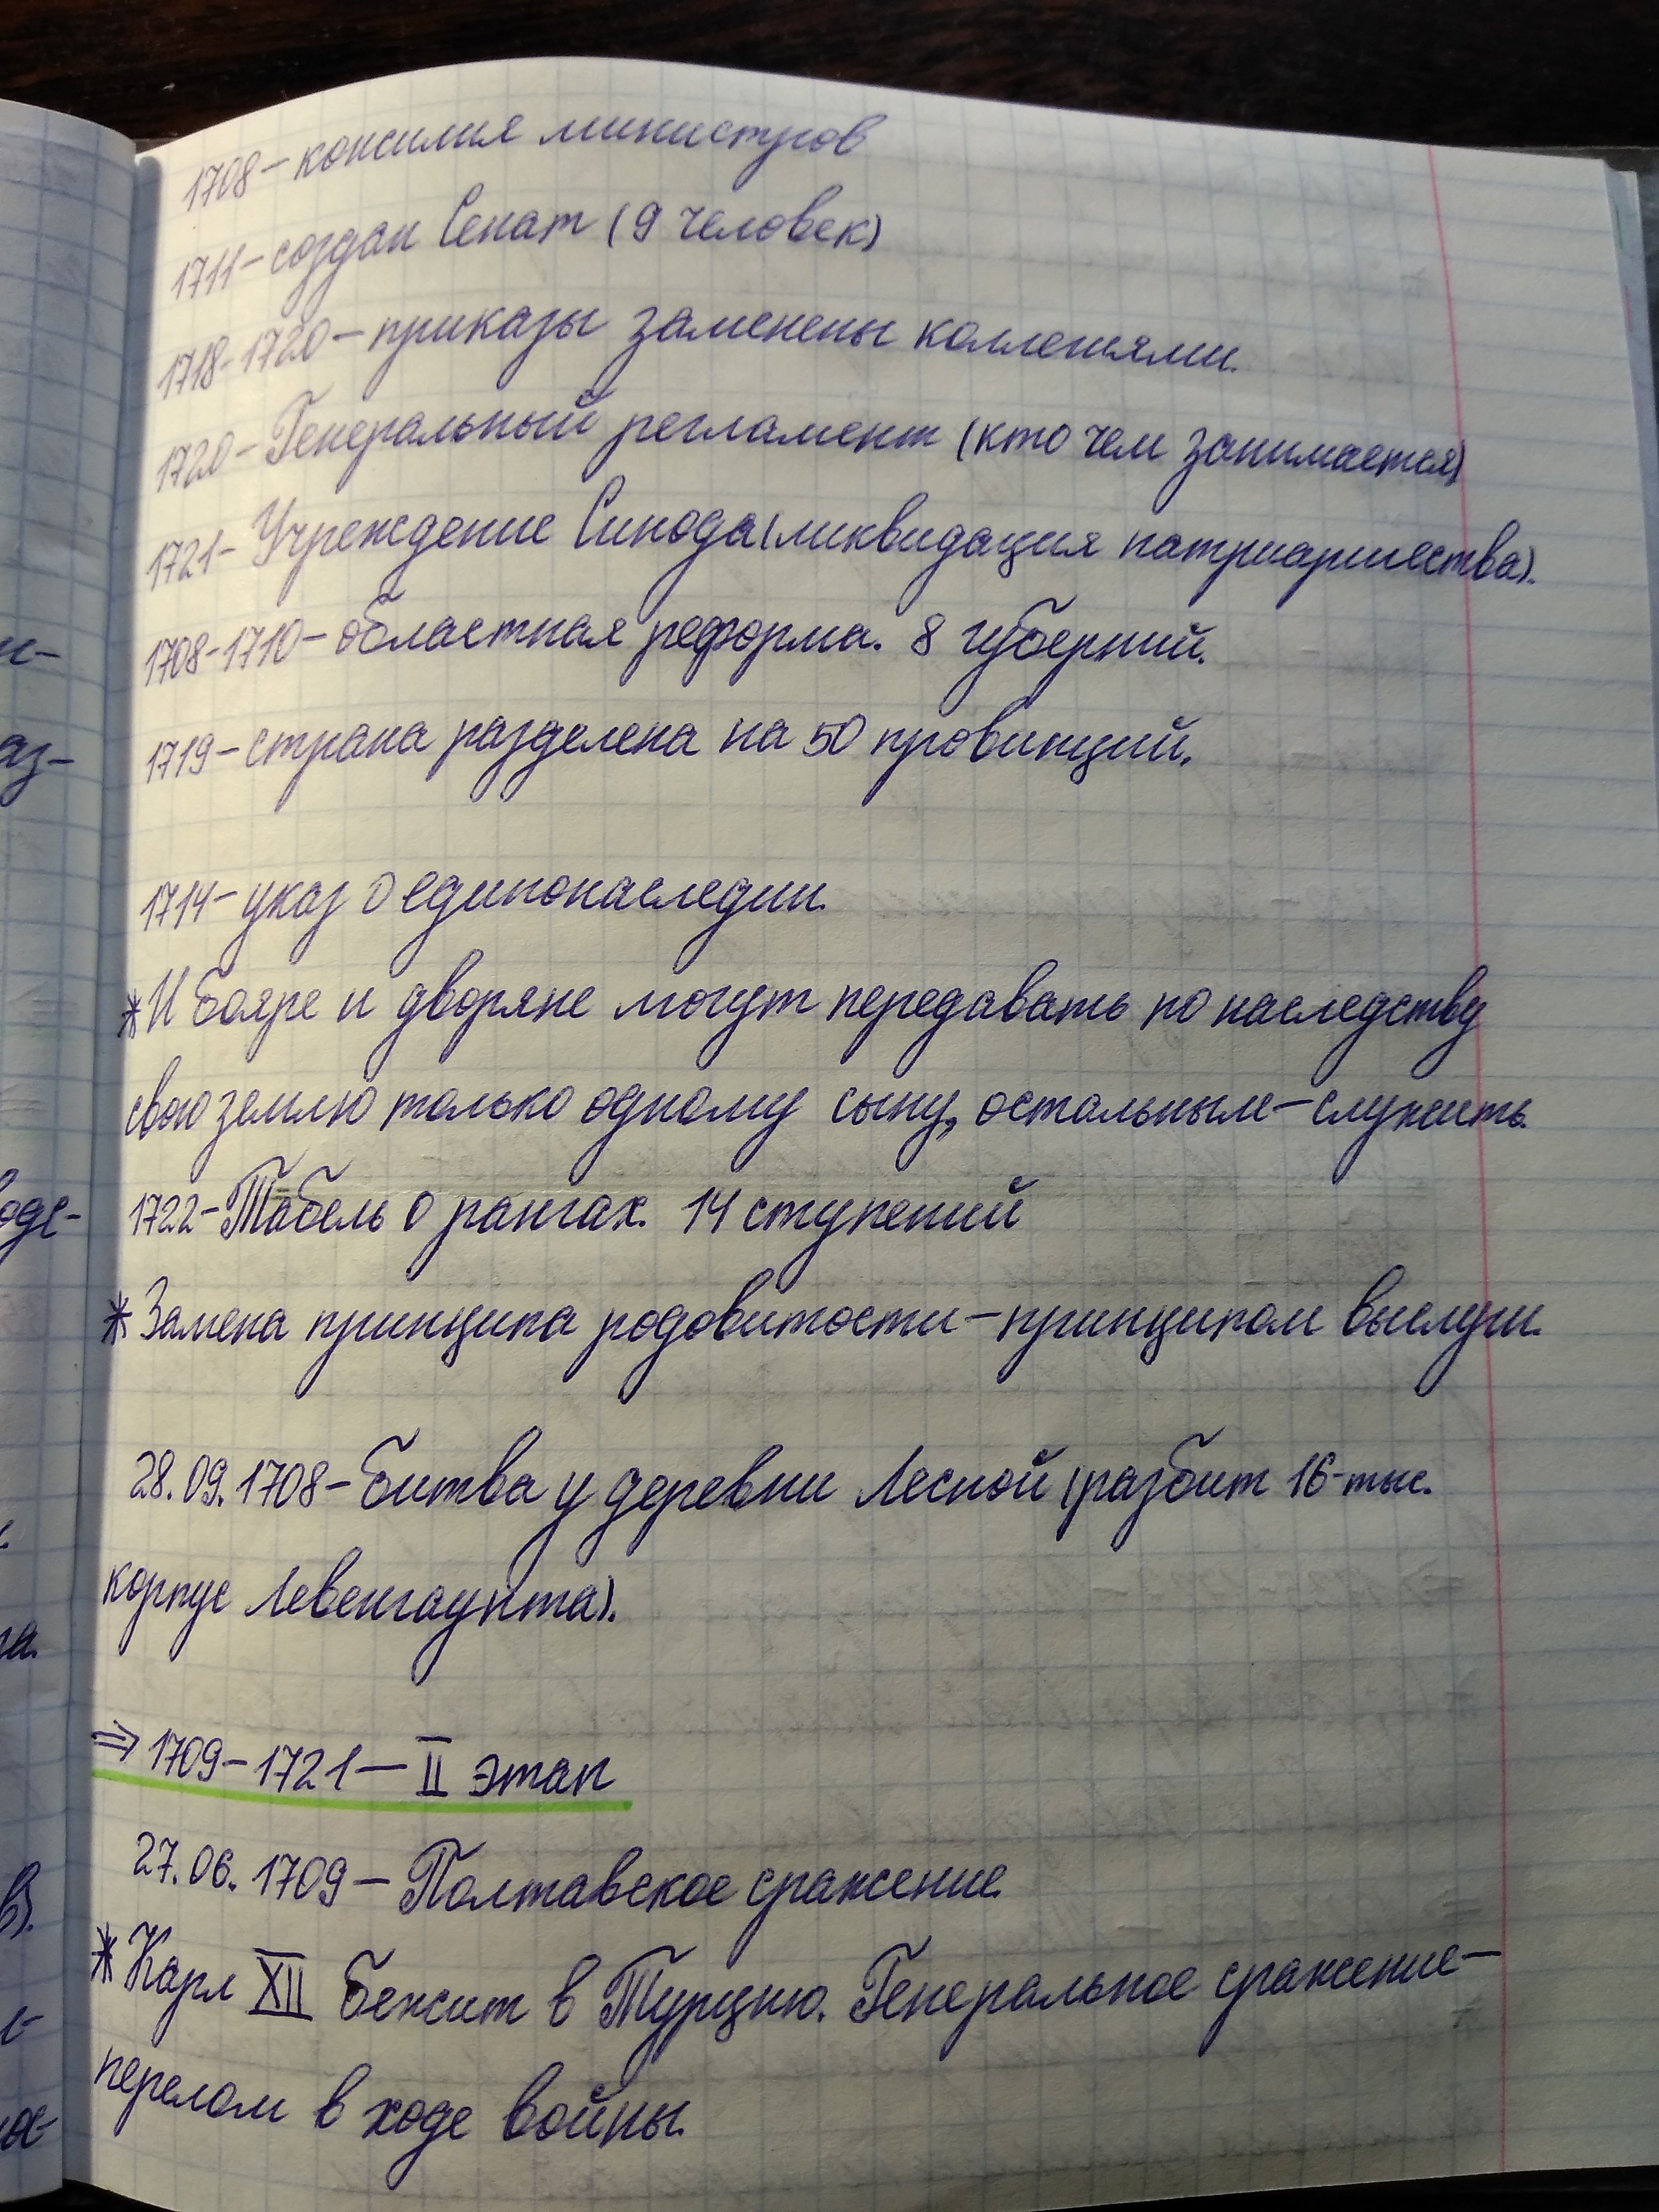 1708 – консилия министров
1711 – создан Сенат (9 человек)
1718-1720 – приказы заменены коллегиями.
1720 – Генеральный регламент (кто чем занимается)
1721 – Учреждение Синода (ликвидация патриаршества).
1708-1710 – областная реформа. 8 губерний.
1719 – страна разделена на 50 провинций.
1714 – указ о единонаследии.
* И бояре и дворяне могут передавать по наследству
свою землю только одному сыну, остальным – служить.
1722 – Табель о рангах. 14 ступений
* Замена принципа родовитости – принципом выслуги.
28.09.1708 – битва у деревни Лесной (разбит 16-тыс.
корпус Левенгаупта).
⇒ 1709 – 1721 – II этап
27.06.1709 – Полтавское сражение.
* Карл XII бежит в Турцию. Генеральное сражение –
перелом в ходе войны.